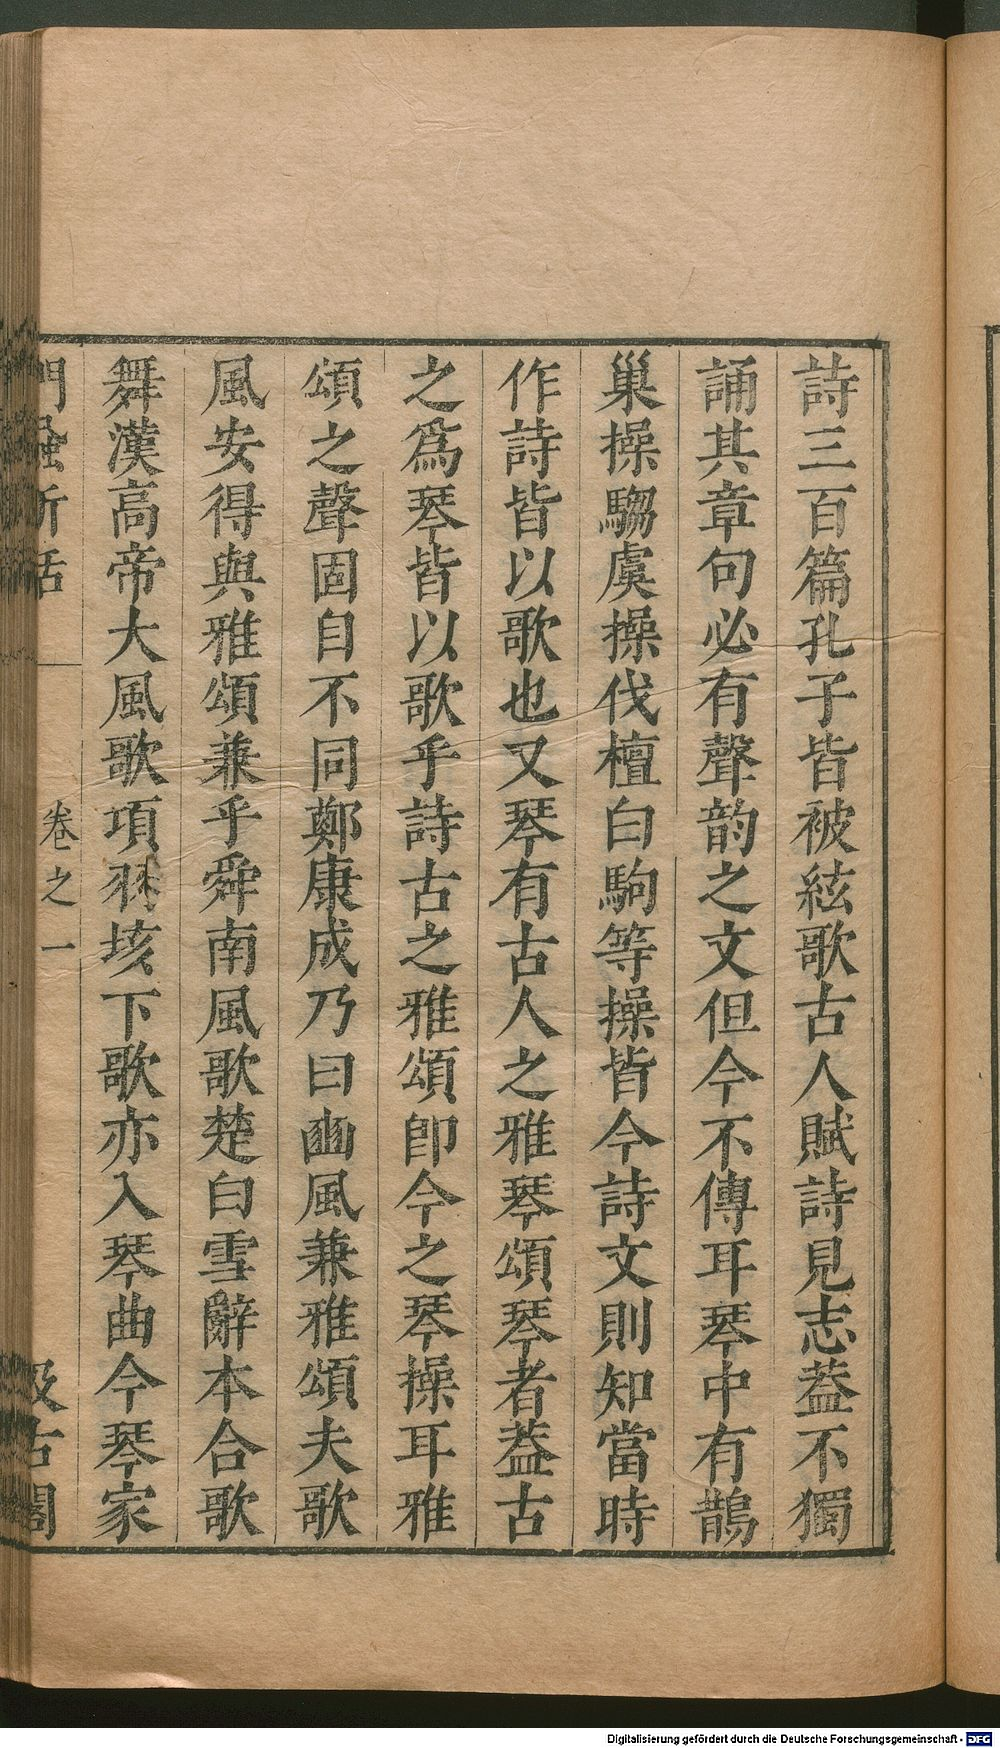 詩三百篇孔子皆被絃歌古人賦詩見志蓋不獨
誦其章句必有聲韵之文但今不傳耳琴中有鵲
巢操騶虞操伐檀白駒等操皆今詩文則知當時
作詩皆以歌也又琴有古人之雅琴頌琴者蓋古
之爲琴皆以歌乎詩古之雅頌卽今之琴操耳雅
頌之聲固自不同鄭康成乃曰豳風兼雅頌夫歌
風安得與雅頌兼乎舜南風歌楚白雪辭本合歌
舞漢高帝大風歌項羽垓下歌亦入琴曲今琴家
門蝨新話
卷之一
汲古閣
Digitalisierung gefördert durch die Deutsche Forschungsgemeinschaft - DFG